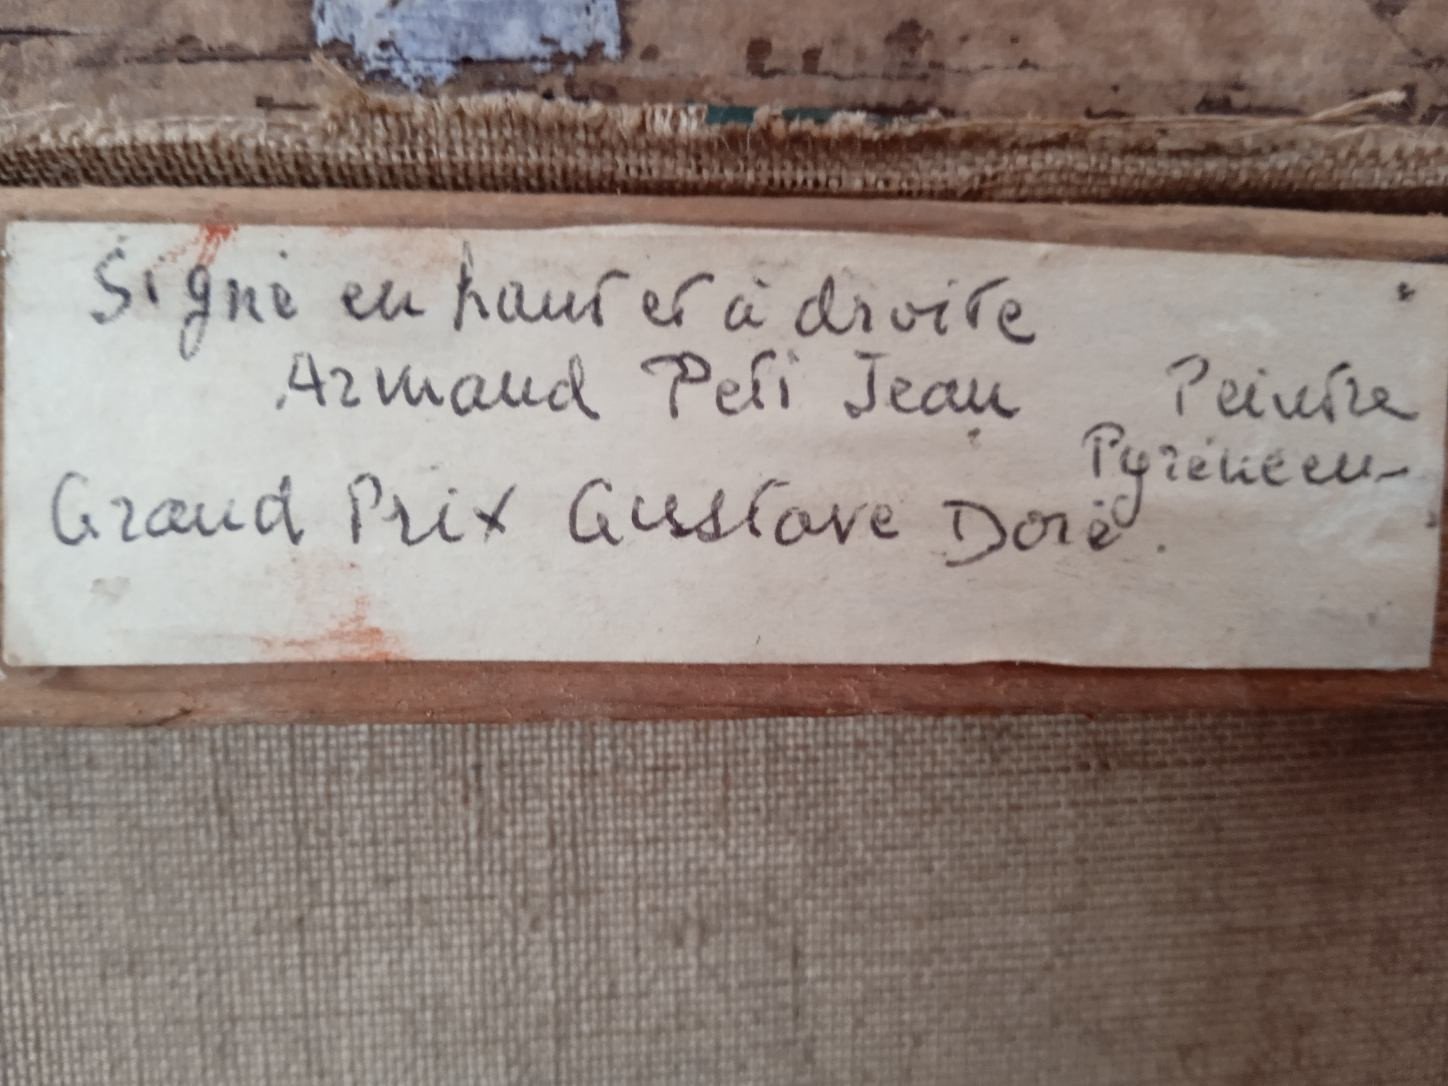 Signé en haut et à droite
Armand Peti Jean Peintre
Pyrénéen-
Grand Prix Gustave Doré.